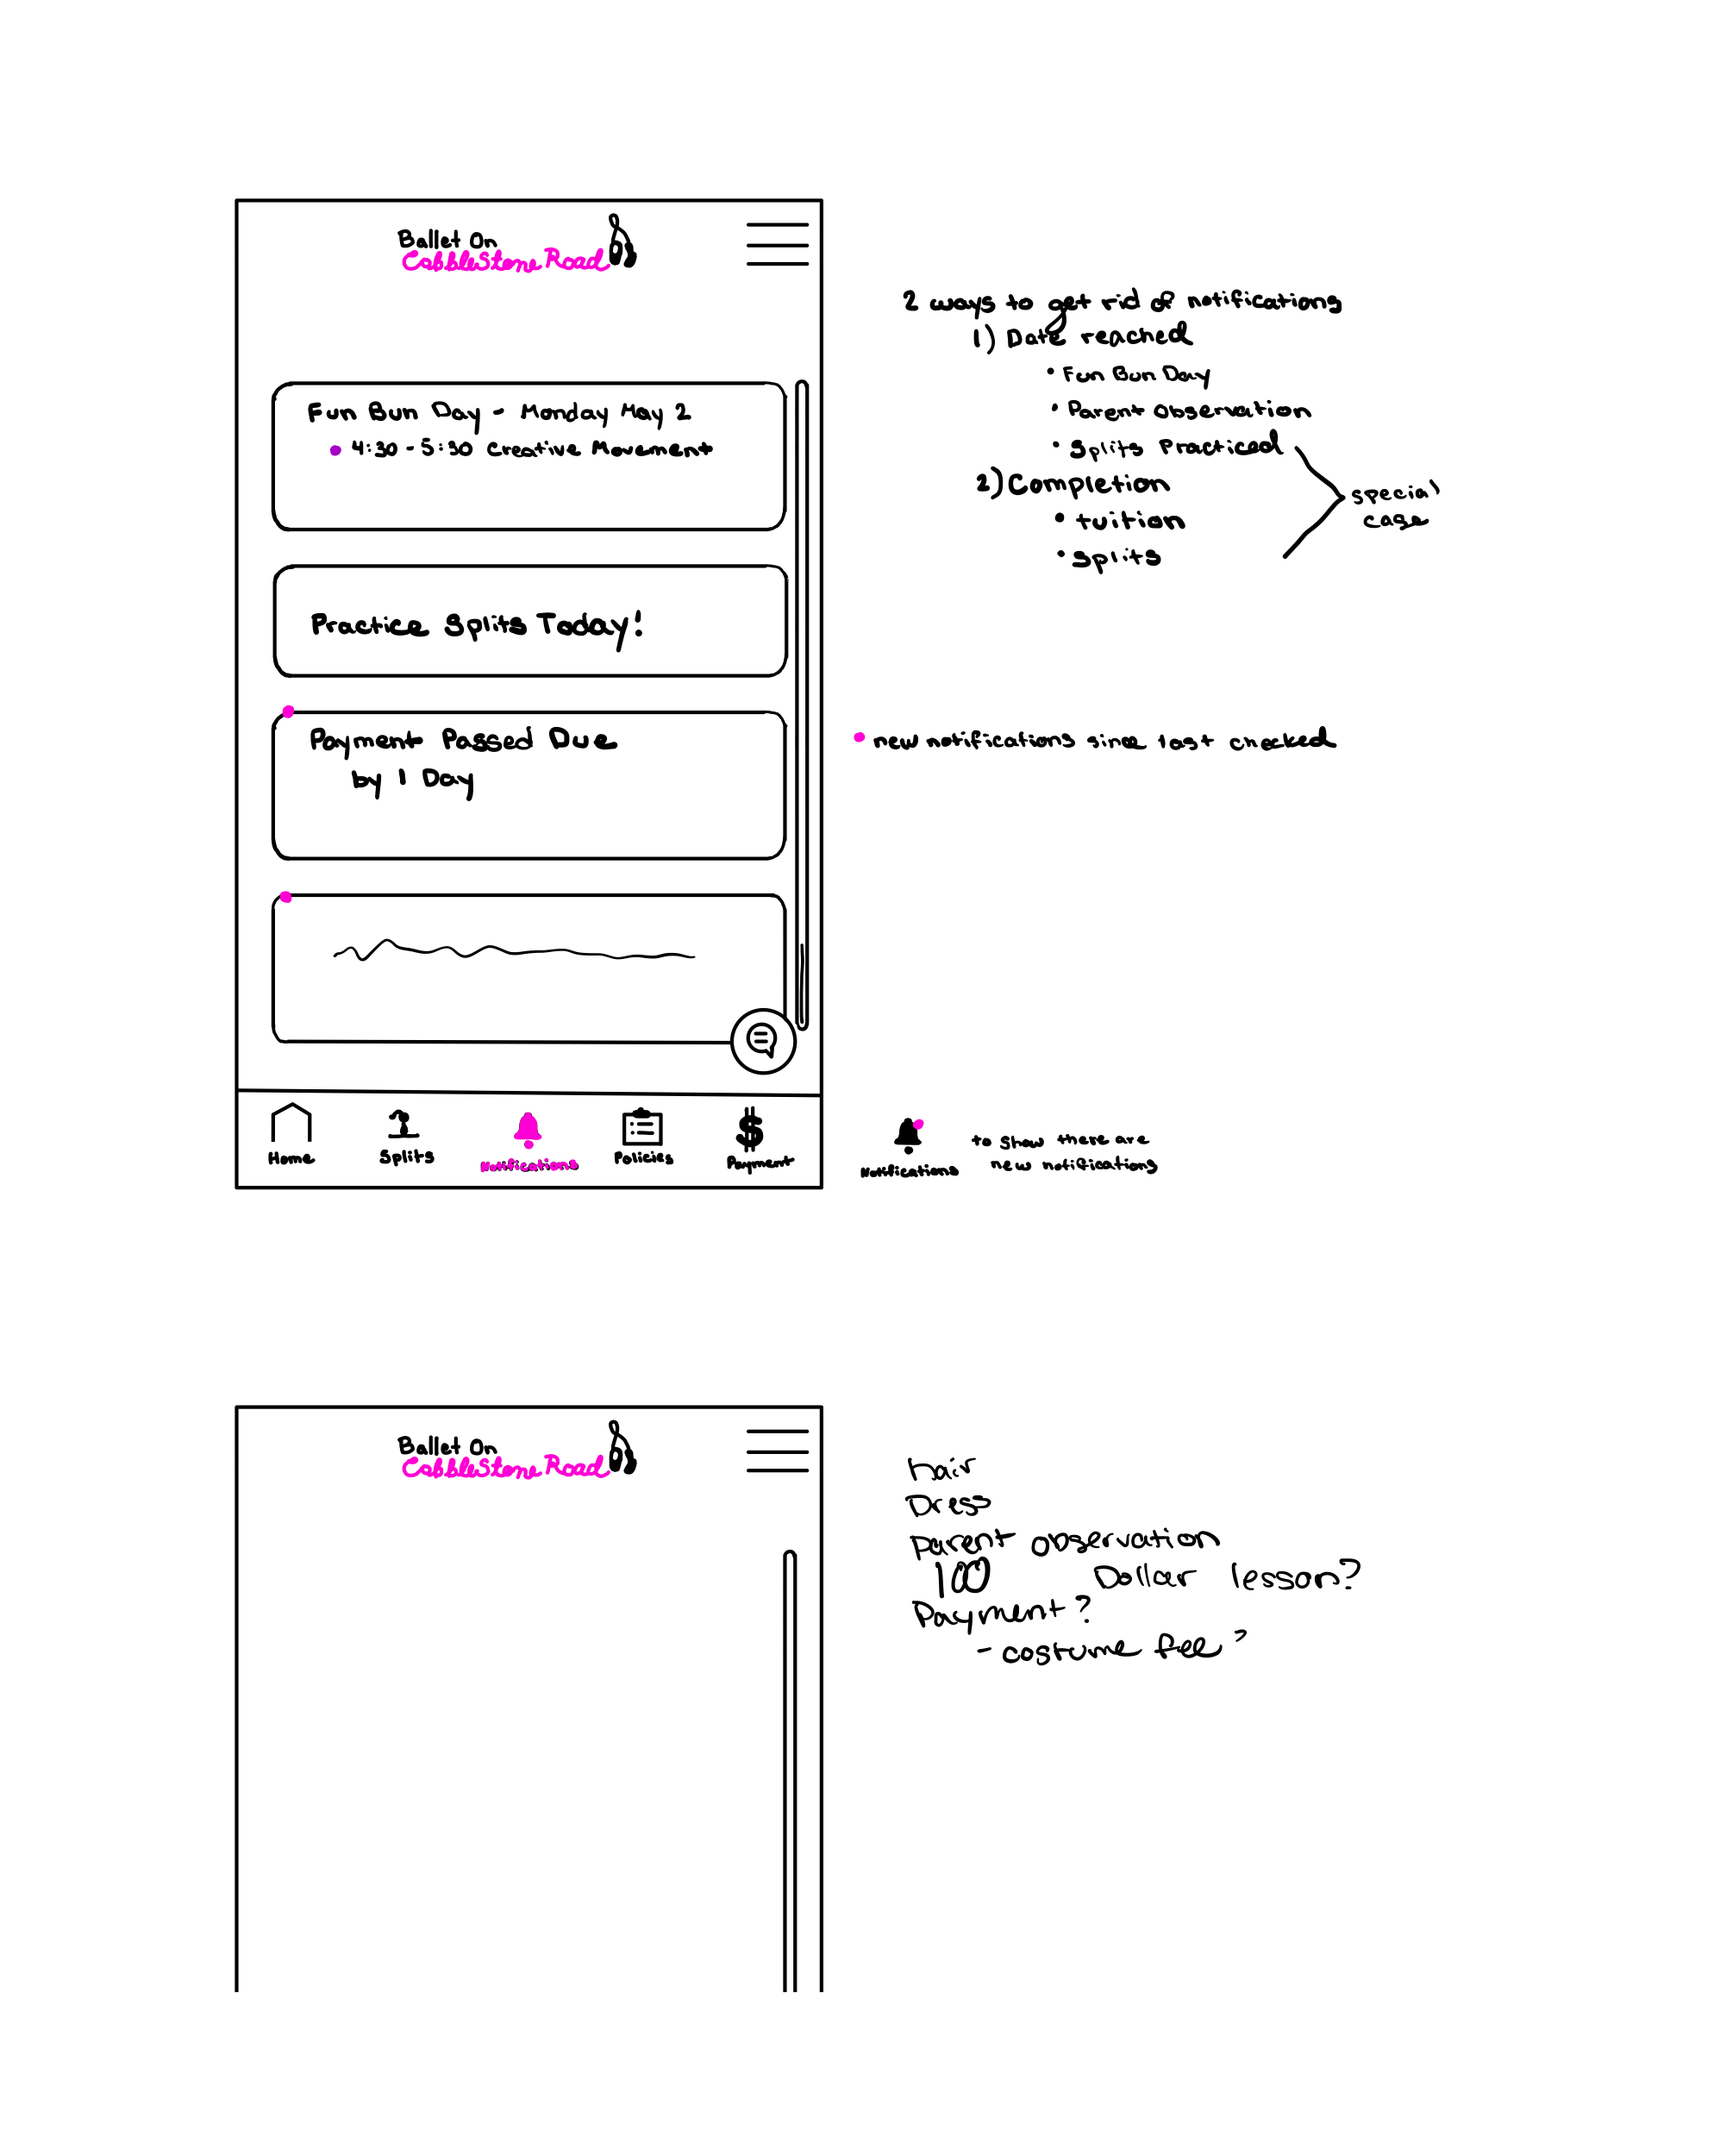 Ballet On
CobbleStone Road
Fun Bun Day - Monday May 2
• 4:30 - 5:30 Creative Movement
Practice Splits Today!
Payment Passed Due
by 1 Day
Home
Splits
Notifications
Policies
Payment
2 ways to get rid of notifications
1) Date reached
• Fun Bun Day
• Parent Observation
• Splits Practiced
2) Completion
• tuition
• splits
special
case
• new notifications since last checked
Notifications
to show there are
new notifications
Ballet On
CobbleStone Road
hair
Dress
Parent observation
100 Dollar lesson?
Payment?
- costume fee?